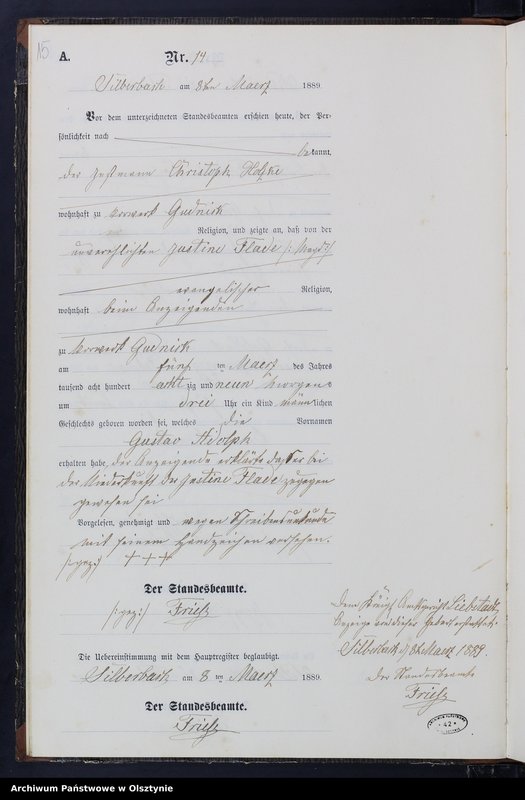 15
A.
Nr. 14
Silberbach am 8ten Maerz 1889.
Vor dem unterzeichneten Standesbeamten erschien heute, der Per-
sönlichkeit nach
bekannt,
der Instmann Christoph
wohnhaft zu Vorwerk Gudnick
Religion, und zeigte an, daß von der
unverehelichten Justine Flade /: Magd :/
evangelischer Religion,
wohnhaft beim Anzeigenden
zu Vorwerk Gudnick
am fünf ten Maerz des Jahres
tausend acht hundert acht zig und neun Morgens
um drei Uhr ein Kind männlichen
Geschlechts geboren worden sei, welches die Vornamen
Gustav Adolph
erhalten habe, der Anzeigende erklärte daß er bei
der Niederkunft der Justine Flade zugegen
gewesen sei
Vorgelesen, genehmigt und wegen Schreibensunkunde
mit seinem Handzeichen versehen.
/:gez:/ + + +
Der Standesbeamte.
/:gez:/ Friese
Die Uebereinstimmung mit dem Hauptregister beglaubigt.
Silberbach am 8 ten Maerz 1889.
Der Standesbeamte.
Friese
Dem Königl. Amtsgericht Liebstadt
Anzeige von dieser Geburt erstattet.
Silberbach d 8ten Maerz 1889.
Der Standesbeamte
Friese
42
Archiwum Państwowe w Olsztynie